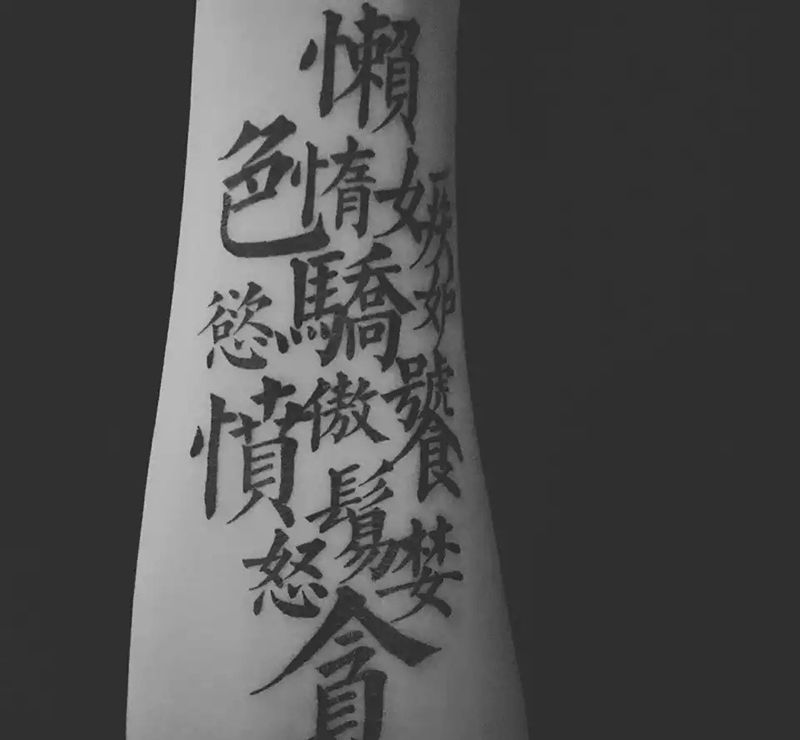 懶惰
色慾
嫉
驕傲
饕
鬄
憤怒
婪
貪